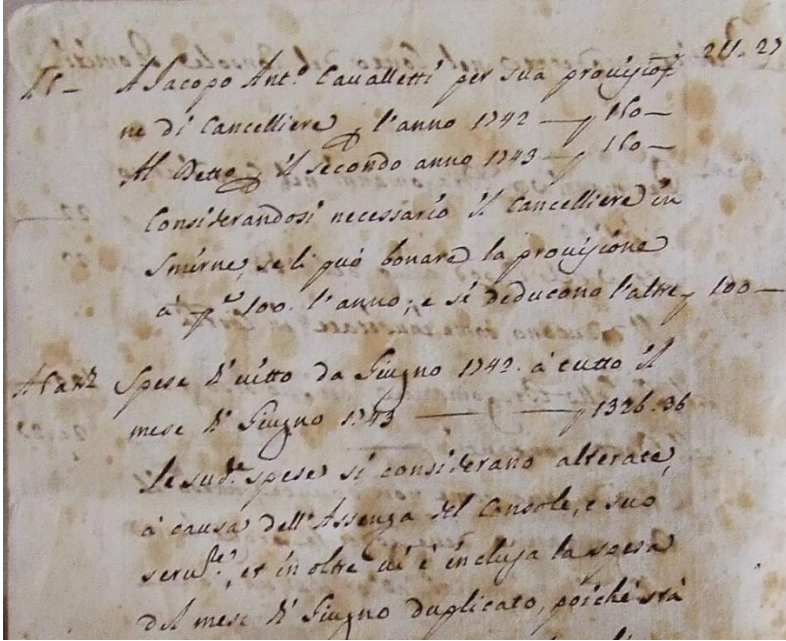 211. 27
A Jacopo Ant.o Cavalletti per sua provisio=
ne di Cancelliere p l'anno 1742 — p 150 —
Al detto p il secondo anno 1743 — p 150 —
Considerandosi necessario il Cancelliere in
Smirne, se li può bonare la provisione
à p.re 100. l'anno; e si deducono l'altre p 100 —
Spese di vitto da Giugno 1742. à tutto il
mese di Giugno 1743 — — p 1326. 36
Le sud.e spese si considerano alterate,
à causa dell'Assenza del Console, e suo
et in oltre vi è inclusa la spesa
del mese di Giugno duplicato, poiché stà